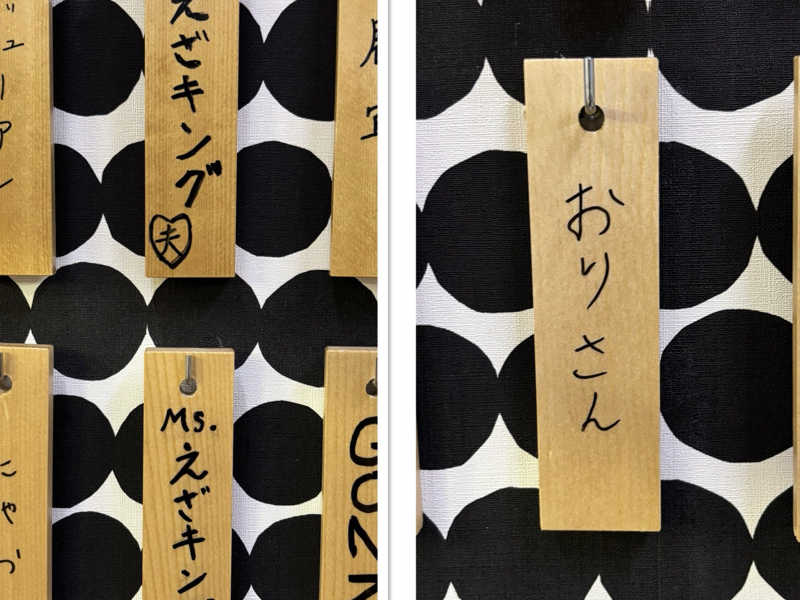 えざキング
夫
Ms.
えざキン
おりさん
ューアン
にゃづ
GOZN
宜